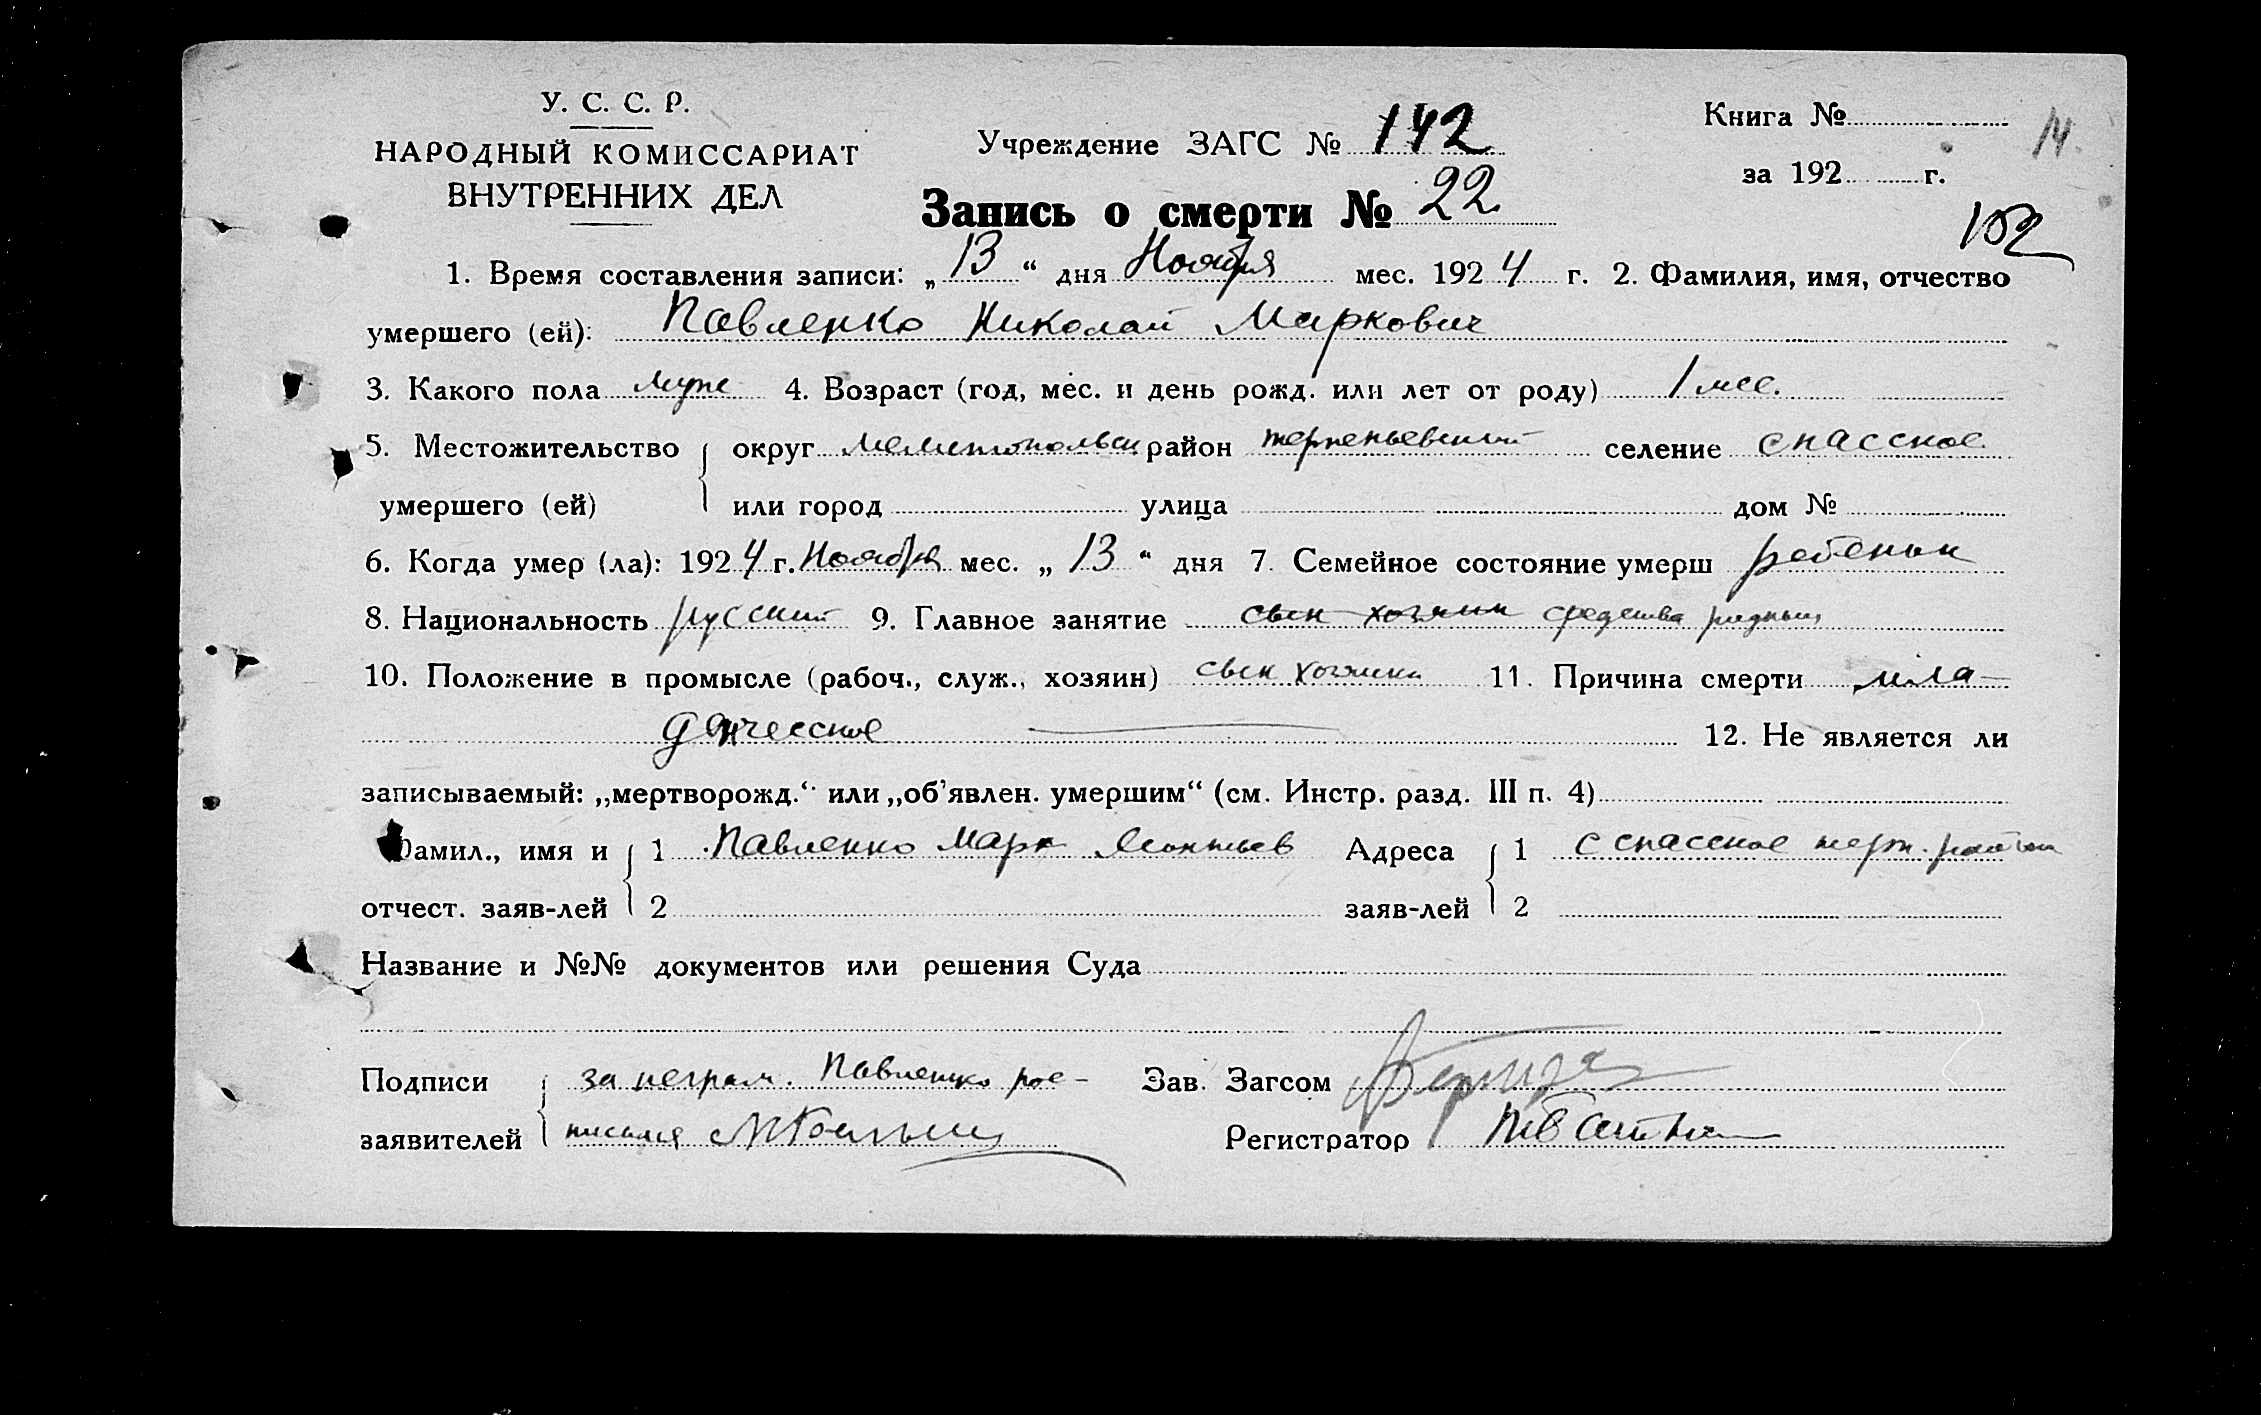 У. С. С. Р.
НАРОДНЫЙ КОМИССАРИАТ
ВНУТРЕННИХ ДЕЛ
Учреждение ЗАГС № 142
Книга №
за 192 г.
14.
Запись о смерти № 22
102
1. Время составления записи: „13“ дня Ноября мес. 1924 г. 2. Фамилия, имя, отчество
умершего (ей): Павленко Николай Маркович
3. Какого пола муже 4. Возраст (год, мес. и день рожд. или лет от роду) 1 мес.
5. Местожительство округ Мелитопольск район терпеньевский селение спасское
умершего (ей) или город улица дом №
6. Когда умер (ла): 1924 г. Ноября мес. „13“ дня 7. Семейное состояние умерш ребенок
8. Национальность русский 9. Главное занятие сын хозяин средства родных
10. Положение в промысле (рабоч., служ., хозяин) сын хозяина 11. Причина смерти мла-
денческое 12. Не является ли
записываемый: „мертворожд.“ или „об’явлен. умершим“ (см. Инстр. разд. III п. 4)
Фамил., имя и 1 Павленко Марк Леонтьев Адреса 1 с спасское терп. район
отчест. заяв-лей 2 заяв-лей 2
Название и №№ документов или решения Суда
Подписи за неграм. Павленко рос- Зав. Загсом
заявителей писался Регистратор